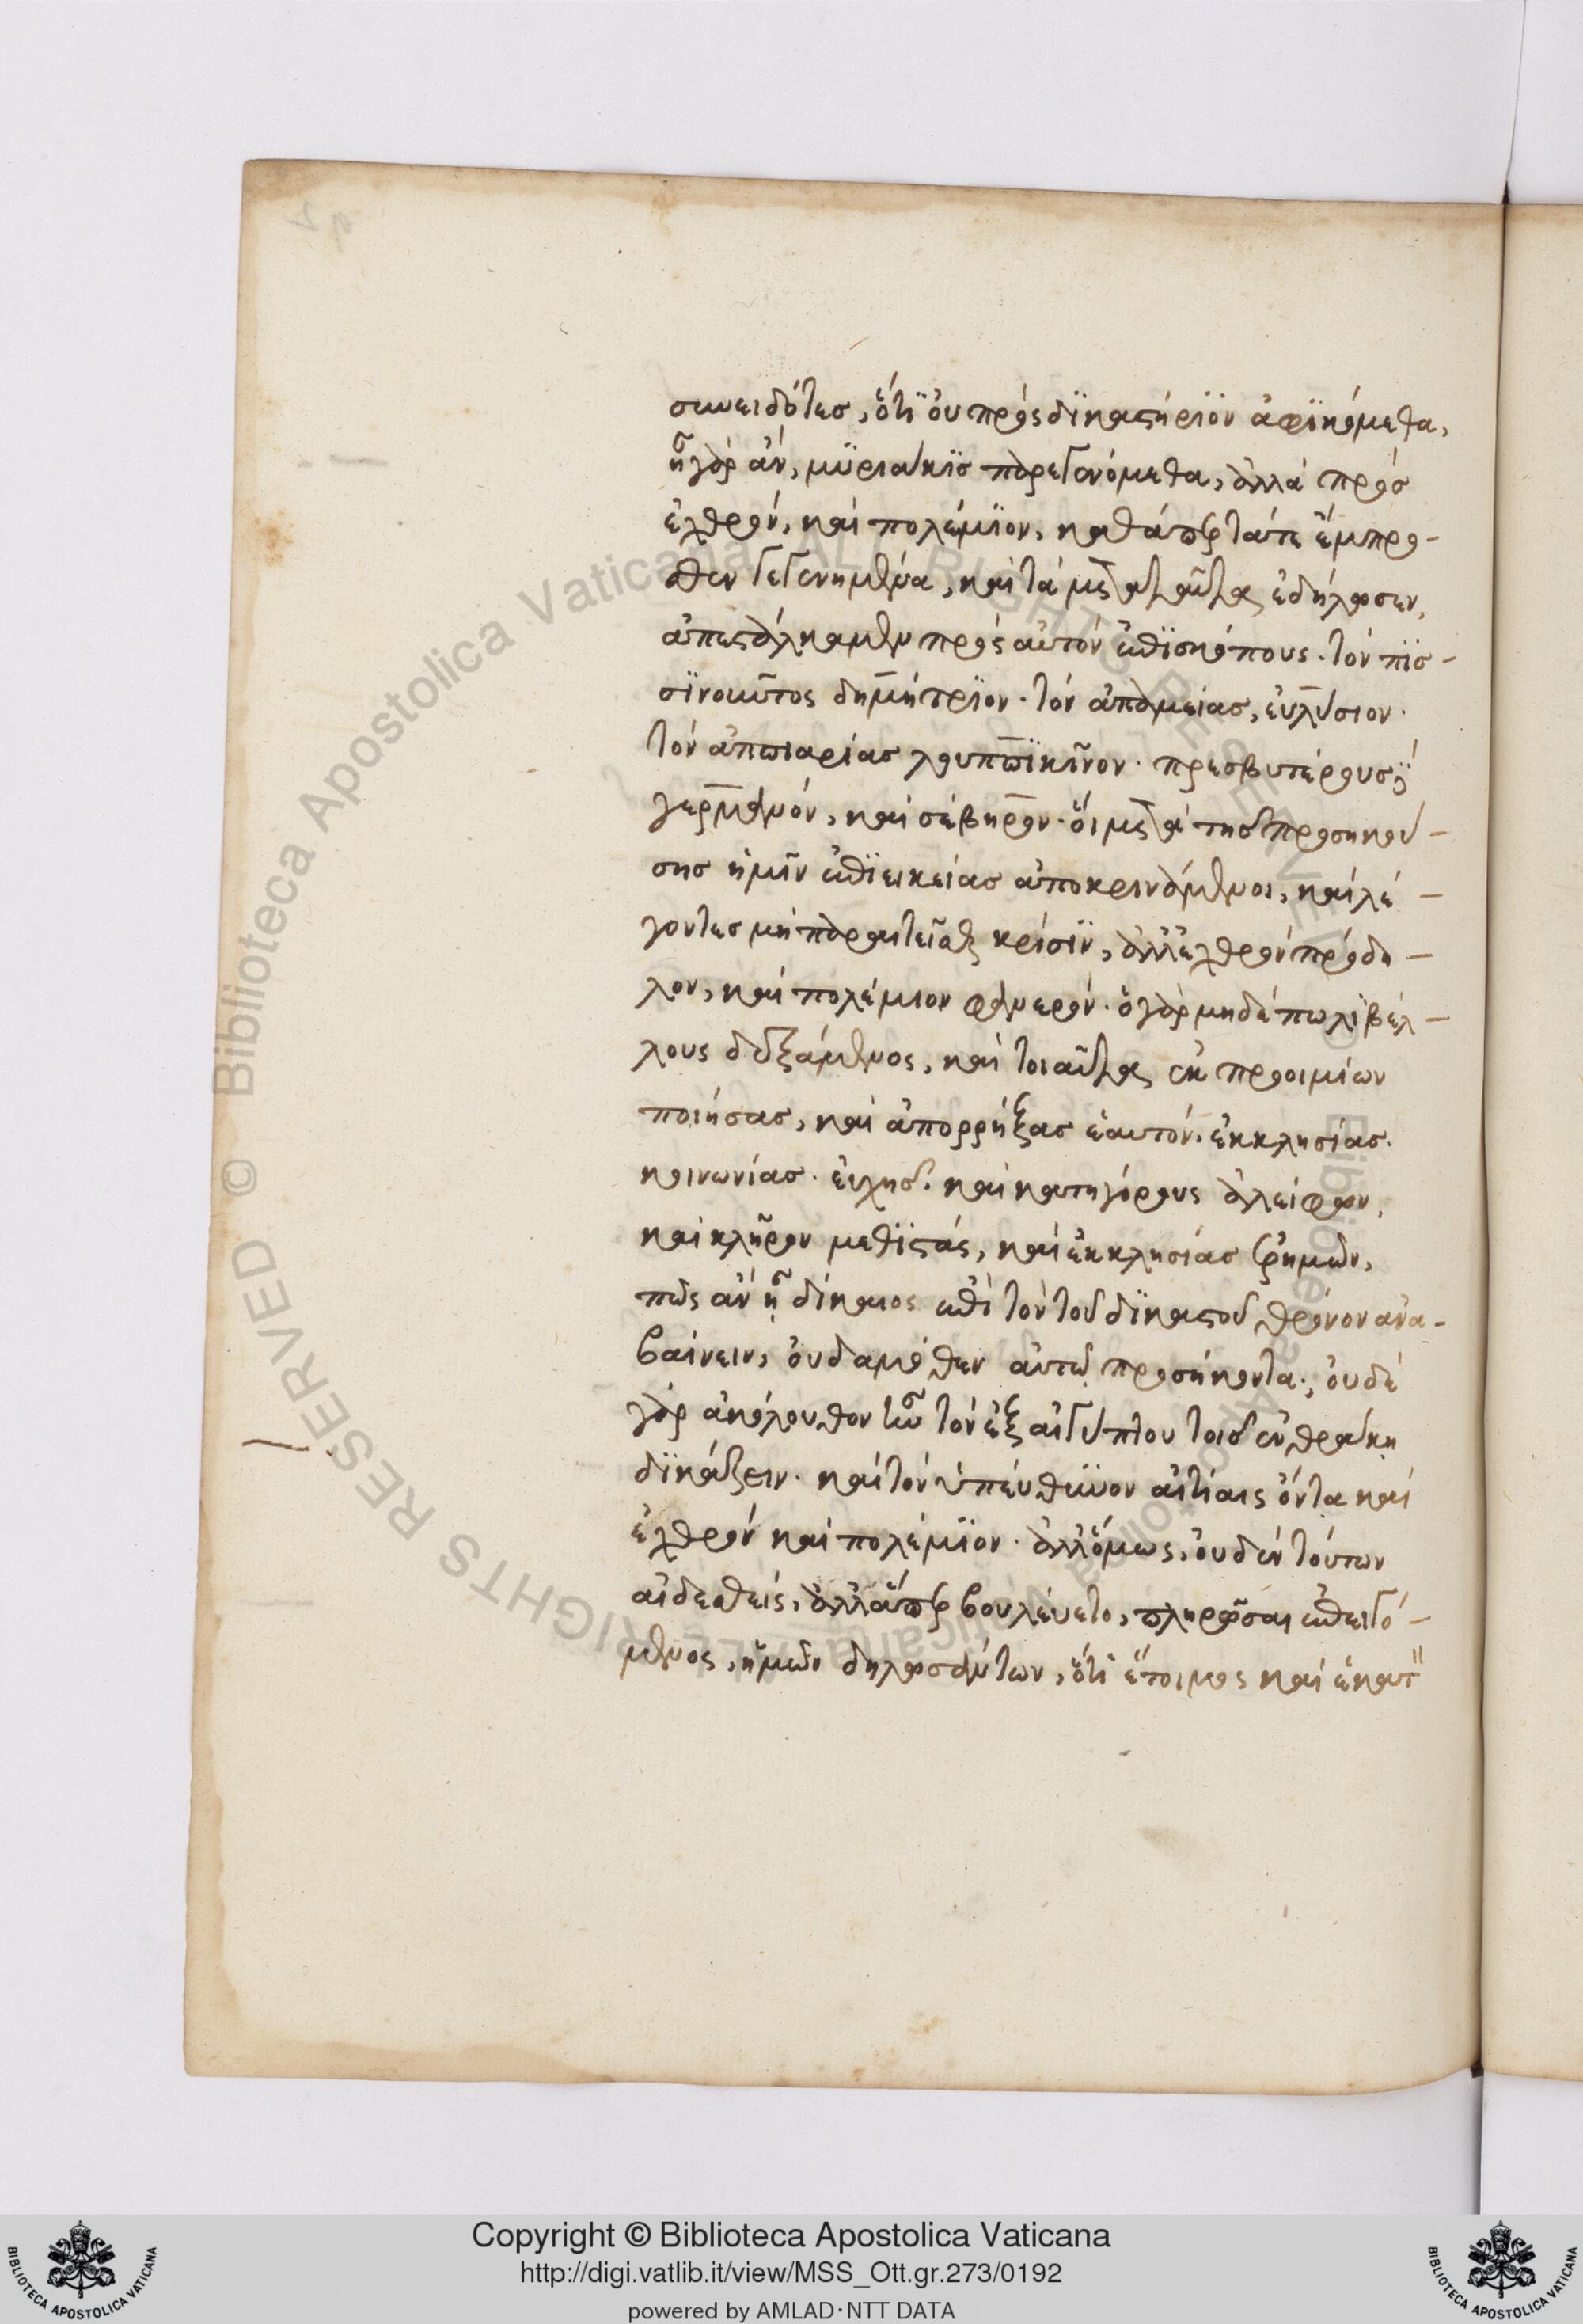 συνειδότεσ, ὅτϊ ὀυ πρὸς δϊκαστήριον ἀφϊκόμεθα,
ἦ γὰρ ἂν, μϋριάκϊσ παρεγενόμεθα, ἀλλὰ πρὸσ
ἐχθρὸν, καὶ πολέμϊον, καθάπερ τάτε ἔμπρο-
σθεν γεγενημένα, καὶ τὰ μετὰ ταῦτα ἐδήλωσεν,
ἀπεστάλκαμεν πρὸς αὐτὸν ἐπϊσκόπους. τὸν πϊσ-
σϊνοῦντος δημήτρϊον. τὸν ἀπαμείασ, εὐλύσιον.
τὸν ἀππιαρίασ λουππϊκῖνον. πρεσβυτέρουσ δὲ
γερμανὸν, καὶ σέβηρον. ὅι μετὰ τῆσ προσηκού-
σησ ἡμῖν ἐπϊεικείασ ἀποκρινάμενοι, καὶ λέ-
γοντεσ μὴ παραιτεῖσθαι κρίσϊν, ἀλλ' ἐχθρὸν πρόδη-
λον, καὶ πολέμιον φανερόν. ὁ γὰρ μηδέπω λϊβέλ-
λους δεξάμενος, καὶ τοιαῦτα ἐκ προοιμίων
ποιήσασ, καὶ ἀπορρήξασ ἑαυτὸν. ἐκκλησίασ.
κοινωνίασ. εὐχῆσ. καὶ κατηγόρους ἀλείφων,
καὶ κλῆρον μεθϊστάς, καὶ ἐκκλησίασ ἐρημῶν,
πῶς ἂν ἦ δίκαιος ἐπὶ τὸν τοῦ δϊκαστοῦ θρόνον ἀνα-
βαίνειν, ὀυδαμόθεν ἀυτῶ προσήκοντα; ὀυδὲ
γὰρ ἀκόλουθον ἦν τὸν ἐξ αἰγύπτου τοῖσ ἐν θράκη
δϊκάζειν. καὶ τὸν ὑπεύθυνον αἰτίαις ὄντα καὶ
ἐχθρὸν καὶ πολέμϊον. ἀλλ' ὅμως, ὀυδὲν τούτων
αἰδεσθεὶς, ἀλλ' ἅπερ βουλέυετο, πληρῶσαι ἐπειγό-
μενος, ἡμῶν δηλωσάντων, ὅτϊ ἕτοιμος καὶ ἑκατ"
Copyright © Biblioteca Apostolica Vaticana
http://digi.vatlib.it/view/MSS_Ott.gr.273/0192
powered by AMLAD·NTT DATA